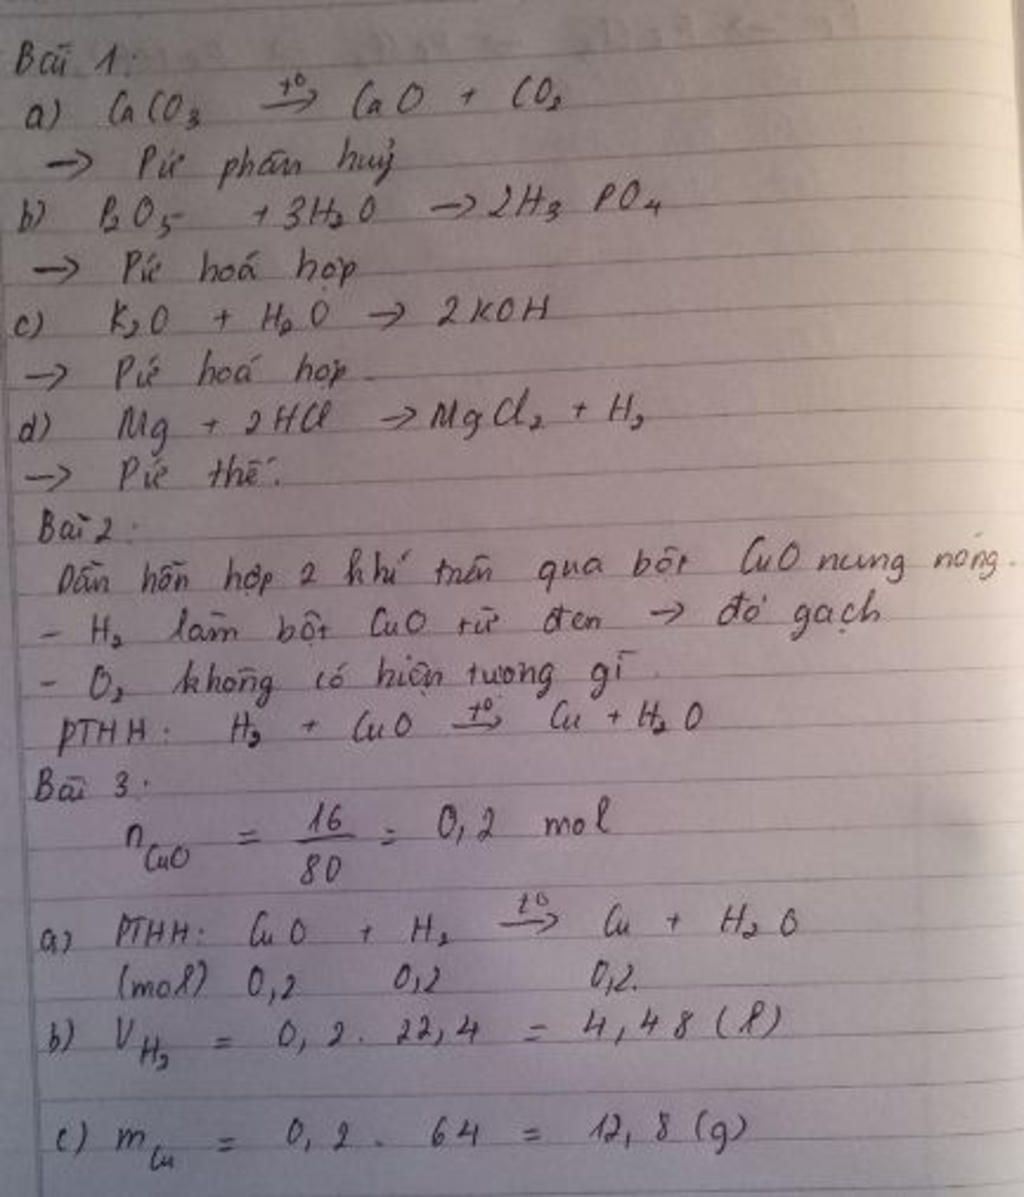 Bài 1:
a) CaCO₃ t° → CaO + CO₂
→ Pứ phân huỷ
b) P₂O₅ + 3H₂O → 2H₃PO₄
→ Pứ hoá hợp
c) K₂O + H₂O → 2KOH
→ Pứ hoá hợp
d) Mg + 2HCl → MgCl₂ + H₂
→ Pứ thế.
Bài 2:
Dẫn hỗn hợp 2 khí trên qua bột CuO nung nóng.
- H₂ làm bột CuO từ đen → đỏ gạch
- O₂ không có hiện tượng gì.
PTHH: H₂ + CuO t° → Cu + H₂O
Bài 3:
n CuO = 16/80 = 0,2 mol
a) PTHH: CuO + H₂ t° → Cu + H₂O
(mol) 0,2 0,2 0,2.
b) V H₂ = 0,2 . 22,4 = 4,48 (l)
c) m Cu = 0,2 . 64 = 12,8 (g)